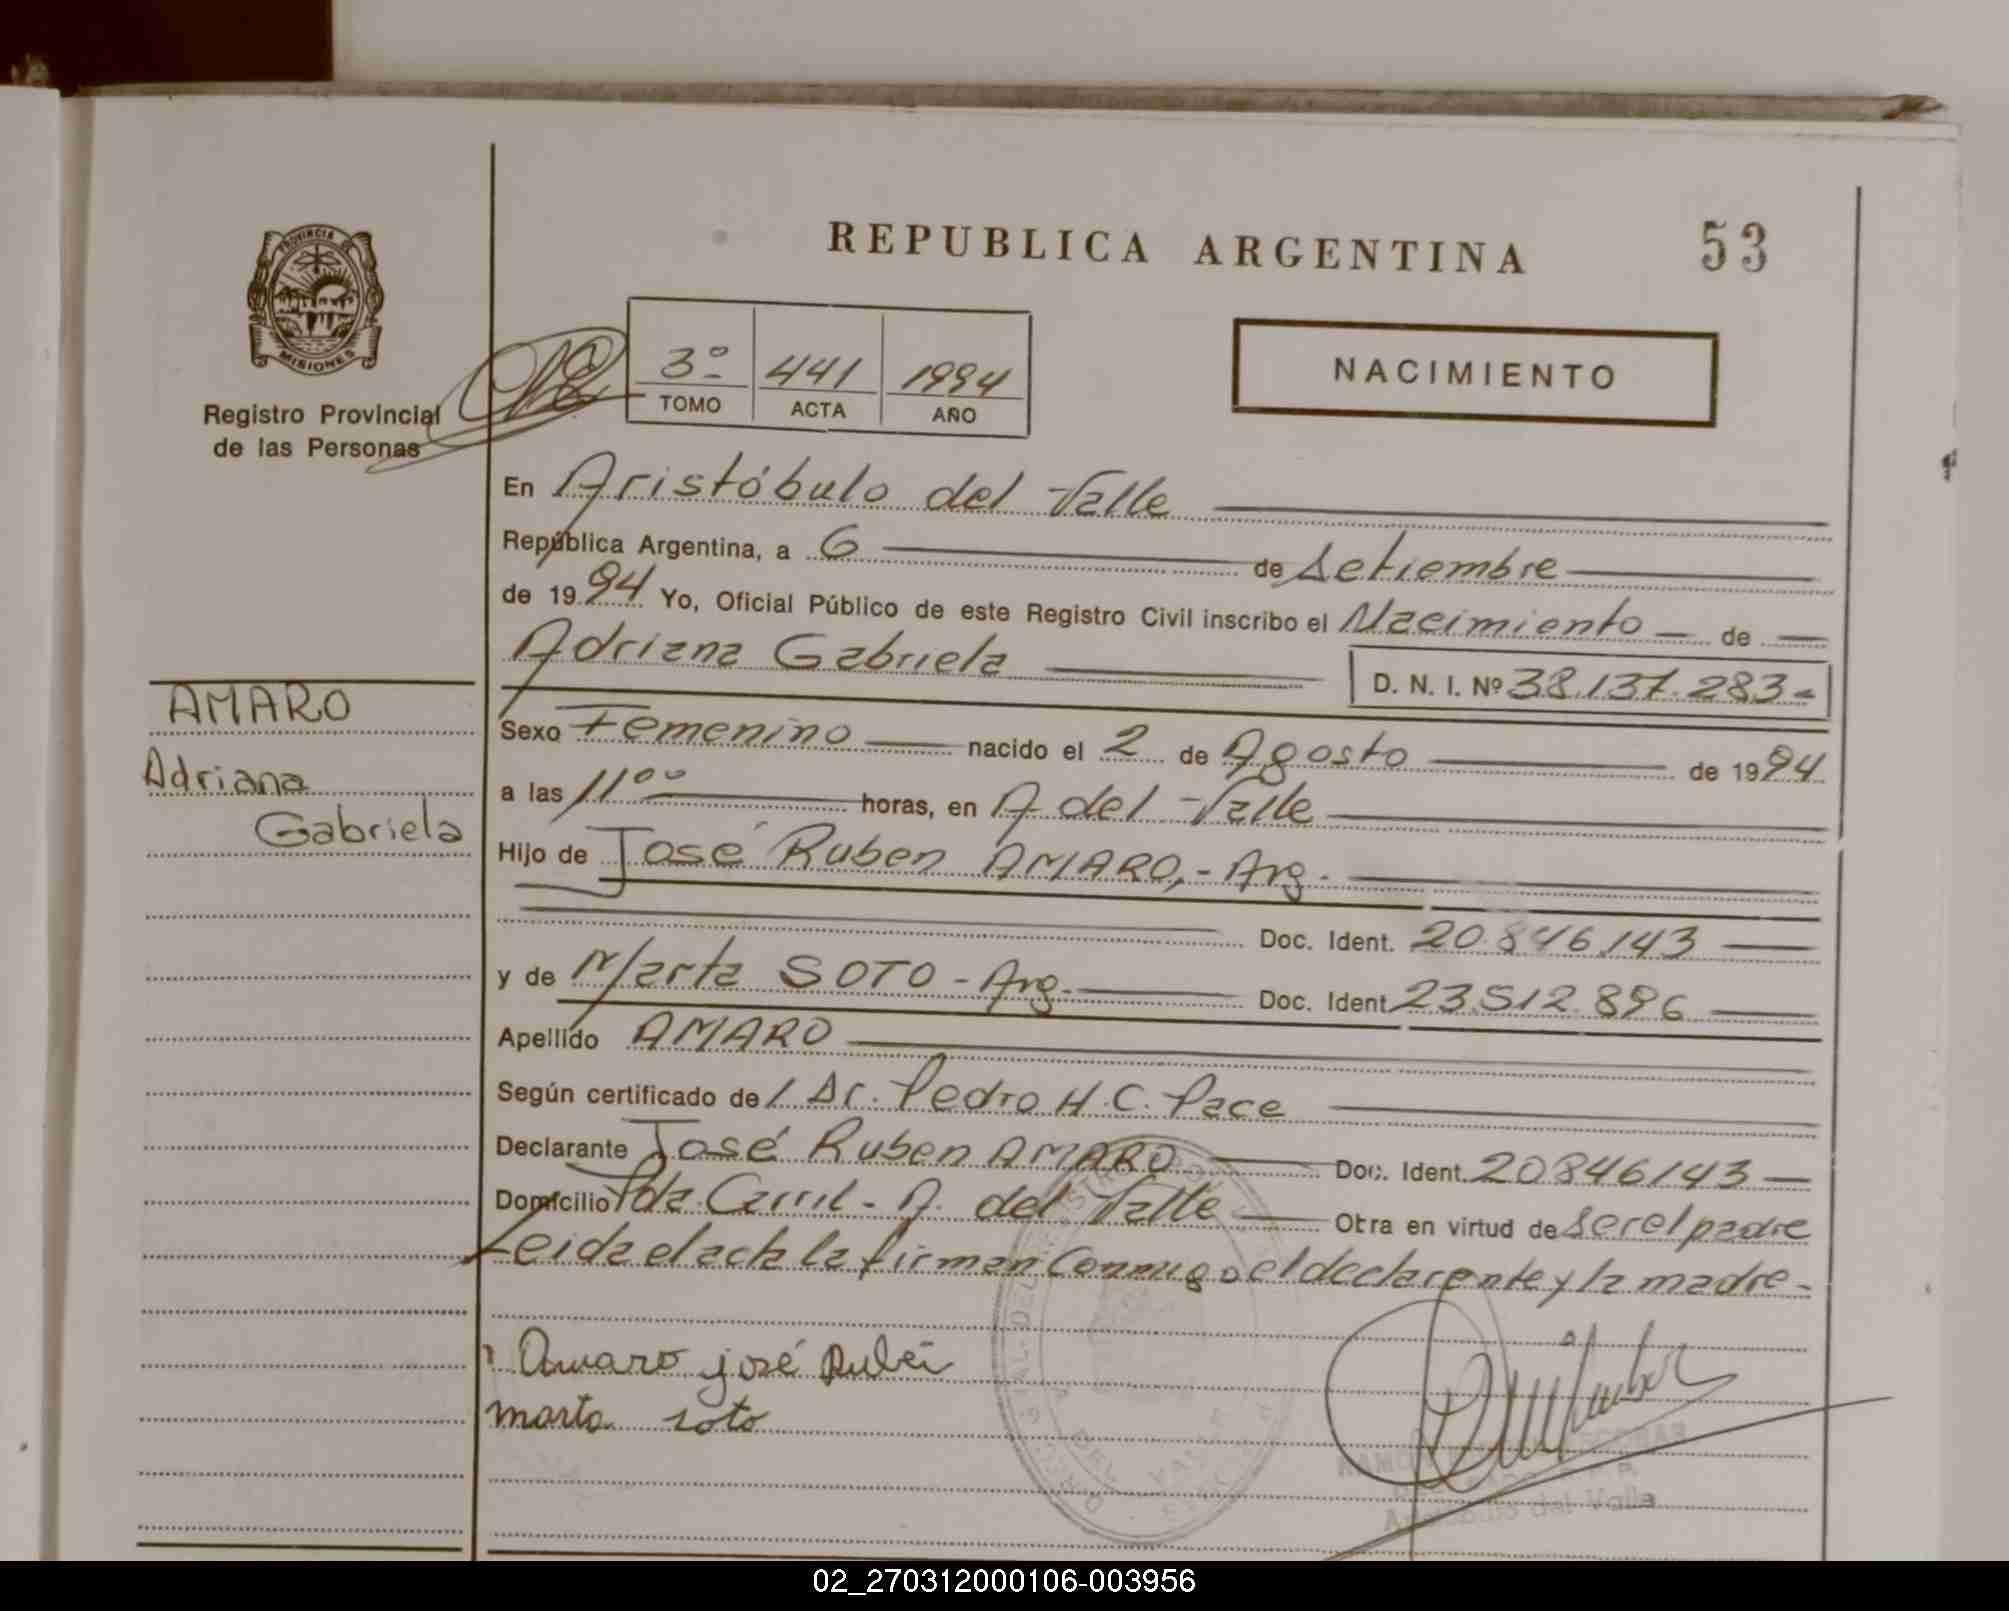 REPUBLICA ARGENTINA
53
PROVINCIA DE
MISIONES
Registro Provincial
de las Personas
3º 441 1994
TOMO ACTA AÑO
NACIMIENTO
En Aristóbulo del Valle
República Argentina, a 6 de Setiembre
de 1994 Yo, Oficial Público de este Registro Civil inscribo el Nacimiento de
Adriana Gabriela D. N. I. Nº 38.137.283
AMARO
Adriana
Gabriela
Sexo Femenino nacido el 2 de Agosto de 1994
a las 11⁰⁰ horas, en A. del Valle
Hijo de José Ruben AMARO,- Arg.
Doc. Ident. 20.846.143
y de Marta SOTO - Arg. Doc. Ident. 23.512.896
Apellido AMARO
Según certificado de / Dr. Pedro H. C. Pace
Declarante José Ruben AMARO Doc. Ident. 20846143
Domicilio Pda. Carril - A. del Valle Otra en virtud de ser el padre
Leida el acta la firman conmigo el declarante y la madre-
Amaro josé Rubén
marta soto
Aristobulo del Valle
02_270312000106-003956